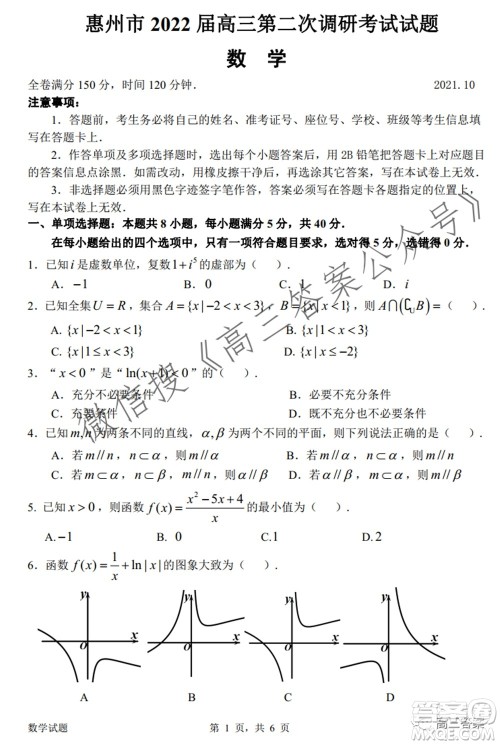 惠州市 2022 届高三第二次调研考试试题
数 学
全卷满分 150 分，时间 120 分钟． 2021.10
注意事项：
1．答题前，考生务必将自己的姓名、准考证号、座位号、学校、班级等考生信息填
写在答题卡上．
2．作答单项及多项选择题时，选出每个小题答案后，用 2B 铅笔把答题卡上对应题目
信息点涂黑．如需改动，用橡皮擦干净后，再选涂其它答案，写在本试卷上无效．
3．非选择题必须用黑色字迹签字笔作答，答案必须写在答题卡各题指定的位置上，
写在本试卷上无效．
一、单项选择题：本题共 8 小题，每小题满分 5 分，共 40 分．
在每小题给出的四个选项中，只有一项符合题目要求，选对得 5 分，选错得 0 分．
1．已知 i 是虚数单位，复数 1+i⁵ 的虚部为（ ）．
A．−1 B．0 C．1 D．i
2．已知全集 U = R，集合 A={x|−2<x<3}，B={x|
，则 A∩(∁UB)=（ ）．
A．{x|−2<x<1} B．{
C．{x|1≤x<3} D．{x|x≤−2}
3．“x<0”是“ln(x+1)<0”的（ ）．
A．充分不必要条件 B．必要不充分条件
C．充要条件 D．既不充分也不必要条件
4．已知 m,n 为两条不同的直线，α,β 为两个不同的平面，则下列说法正确的是（ ）．
A．若 m//n，n⊂α，则 m//α B．若 m//α，n⊂α，则 m//n
C．若 m⊂α，n⊂β，m//n，则 α//β D．若 α//β，m⊂α，则 m//β
5．已知 x>0，则函数 f(x)=(x²−5x+4)/x 的最小值为（ ）．
A.−1 B. 0 C.1 D.2
6．函数 f(x)=1/x+ln|x| 的图象大致为（ ）．
y x O y x O y x O y x O
A B C D
数学试题 第 1 页，共 6 页
微信搜《高三答案公众号》
高三答案